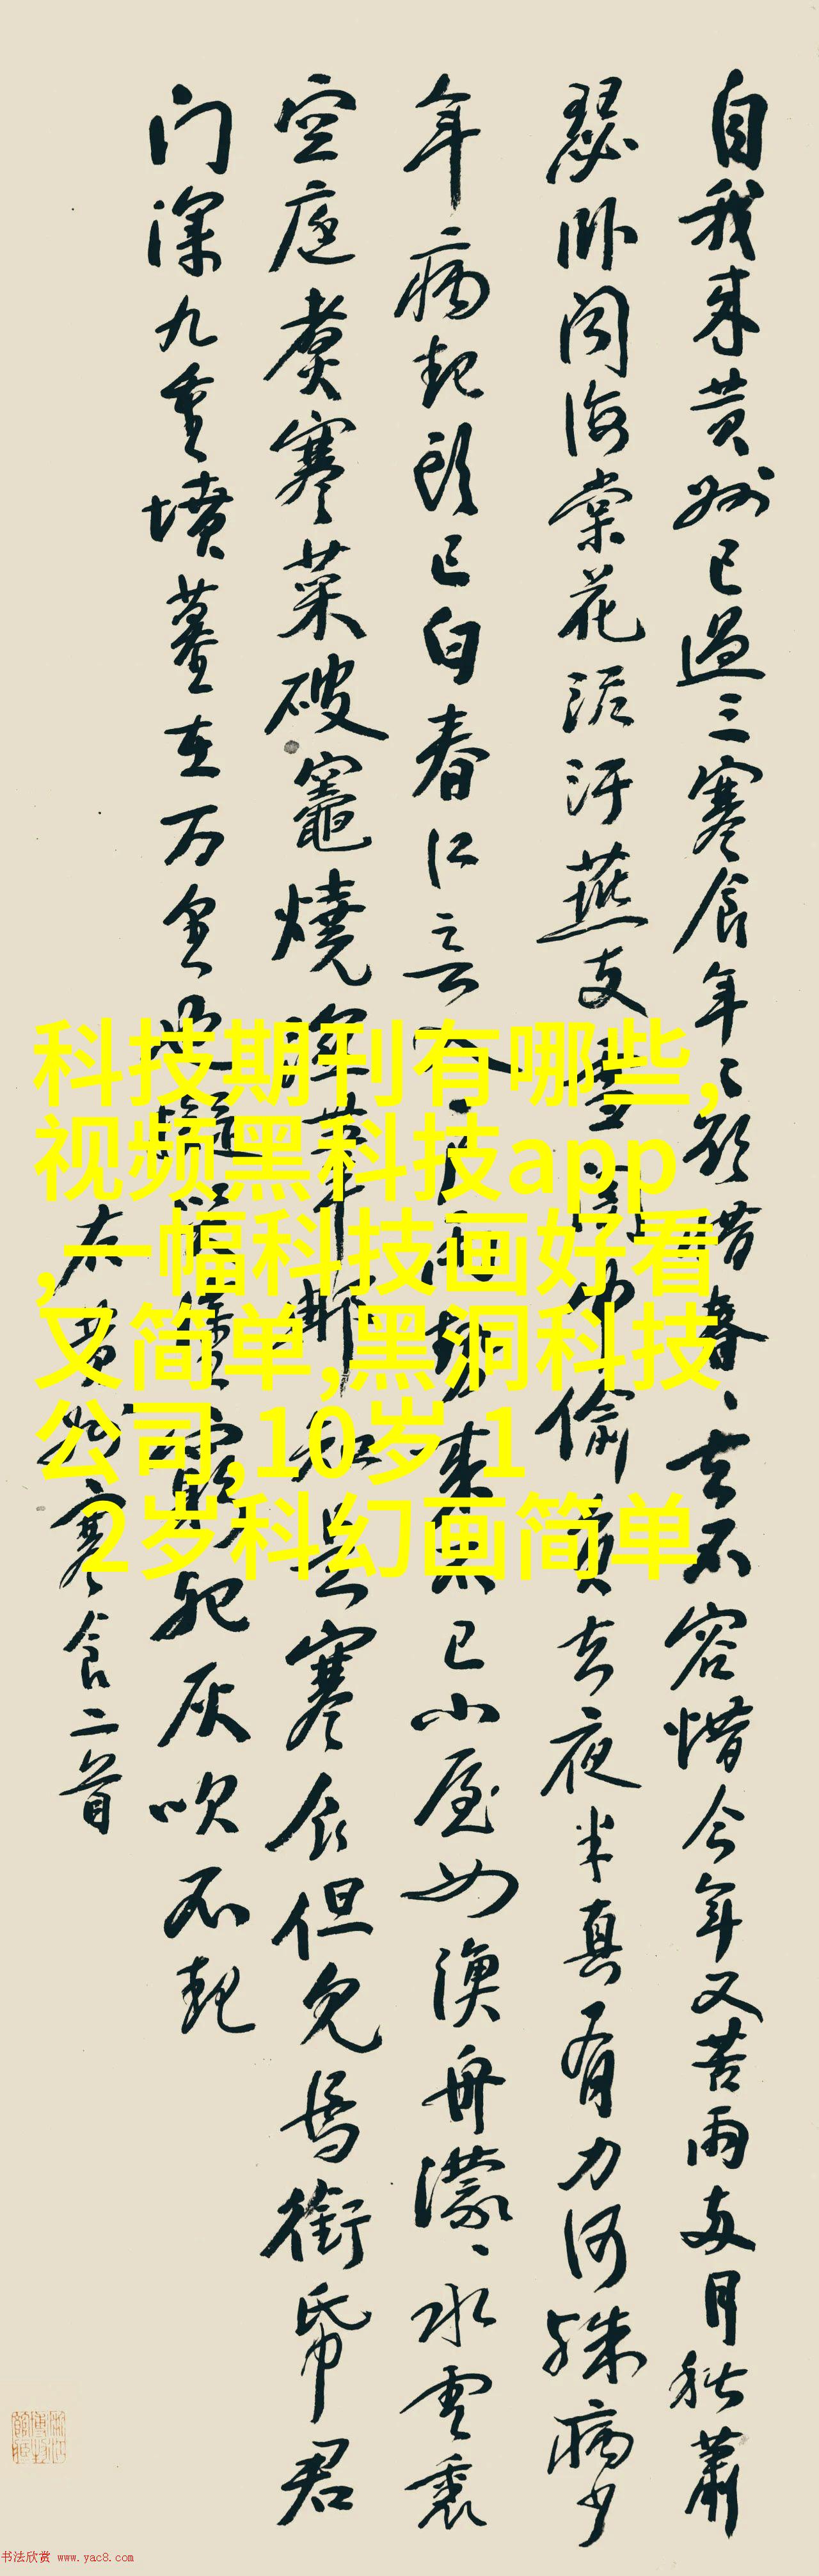 自我来黄州已過三寒食年〻欲惜春、去不容惜今年又苦雨两月秋蕭
瑟卧聞海棠花泥汙燕支雪闇中偷負去夜半真有力何殊病少
年病起頭已白春江入户雨势来不已小屋如漁舟濛、水雲裏
空庖煮寒菜破竈燒葦知是寒食但見烏銜帋君
门深九重墳墓在万里擬哭塗窮死灰吹不起
右黄州寒食二首
科技期刊有哪些,
视频黑科技app
,一幅科技画好看
又简单,黑洞科技
公司,10岁-1
2岁科幻画简单
书法欣赏 www.yac8.com